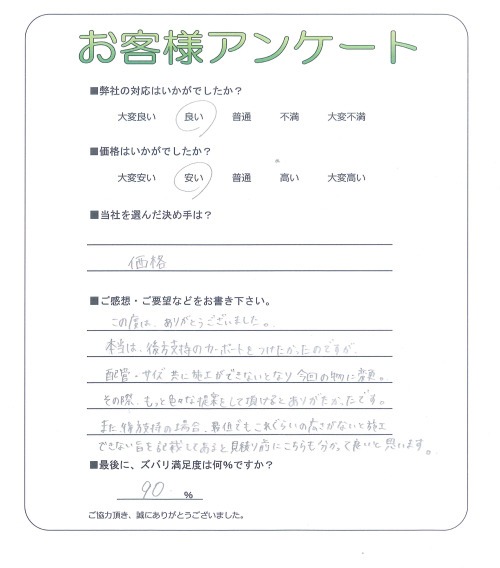 お客様アンケート
■弊社の対応はいかがでしたか？
大変良い 良い 普通 不満 大変不満
■価格はいかがでしたか？
大変安い 安い 普通 高い 大変高い
■当社を選んだ決め手は？
価格
■ご感想・ご要望などをお書き下さい。
この度は、ありがとうございました。
本当は、後方支持のカーポートをつけたかったのですが、
配管・サイズ共に施工ができないとなり今回の物に変更。
その際、もっと色々な提案をして頂けるとありがたかったです。
また、後方支持の場合、最低でもこれぐらいの広さがないと施工
できない旨を記載してあると見積り前にこちらも分かって良いと思います。
■最後に、ズバリ満足度は何%ですか？
90 %
ご協力頂き、誠にありがとうございました。